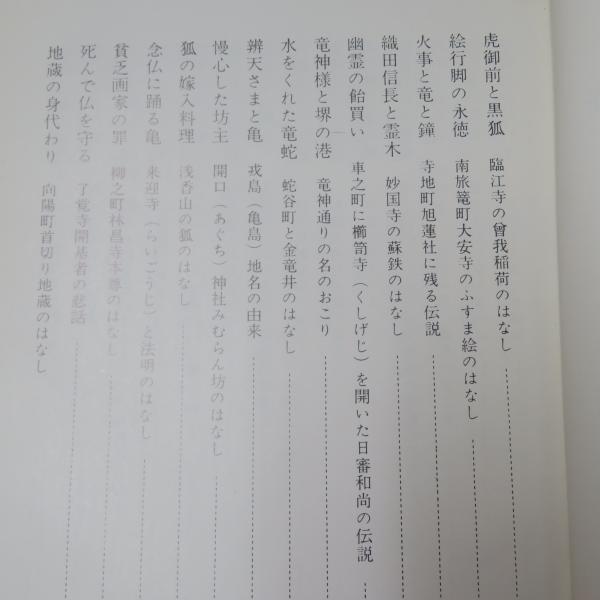 虎御前と黒狐　臨江寺の曾我稲荷のはなし
絵行脚の永徳　南旅篭町大安寺のふすま絵のはなし
火事と竜と鐘　寺地町旭蓮社に残る伝説
織田信長と霊木　妙国寺の蘇鉄のはなし
幽霊の飴買い　車之町に櫛笥寺（くしげじ）を開いた日審和尚の伝説
竜神様と堺の港　竜神通りの名のおこり
水をくれた竜蛇　蛇谷町と金竜井のはなし
辨天さまと亀　戎島（亀島）地名の由来
慢心した坊主　開口（あぐち）神社みむらん坊のはなし
狐の嫁入料理　浅香山の狐のはなし
念仏に踊る亀　来迎寺（らいごうじ）と法明のはなし
貧乏画家の罪　柳之町林昌寺本尊のはなし
死んで仏を守る　了覚寺開基者の悲話
地蔵の身代わり　向陽町首切り地蔵のはなし